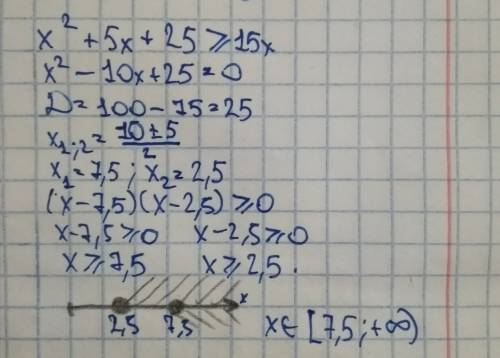 x² + 5x + 25 ≥ 15x
x² - 10x + 25 = 0
D = 100 - 75 = 25
x₁;₂ = (10 ± 5)/2
x₁ = 7,5 ; x₂ = 2,5
(x - 7,5)(x - 2,5) ≥ 0
x - 7,5 ≥ 0 x - 2,5 ≥ 0
x ≥ 7,5 x ≥ 2,5 .
x
2,5 7,5 x ∈ [7,5 ; +∞)